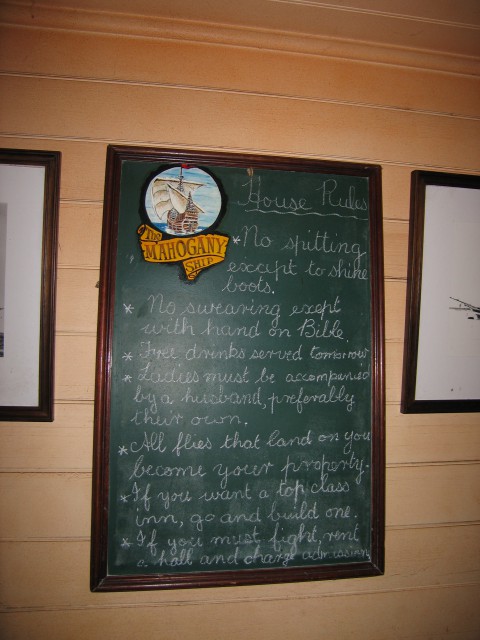 House Rules
THE
MAHOGANY
SHIP
* No spitting
except to shine
boots.
* No swearing exept
with hand on Bible.
* Free drinks served tomorrow
* Ladies must be accompanied
by a husband, preferably
their own.
* All flies that land on you
become your property.
* If you want a top class
inn, go and build one.
* If you must fight, rent
a hall and charge admission